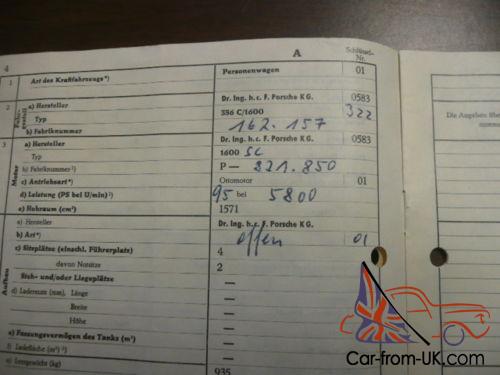 4 A Schlüssel-Nr.
1 Art des Kraftfahrzeugs*) Personenwagen 01
2 Fahrgestell a) Hersteller Dr. Ing. h. c. F. Porsche KG. 0583
Typ 356 C/1600 322
b) Fabriknummer 162.157
3 Motor a) Hersteller Dr. Ing. h. c. F. Porsche KG. 0583
Typ 1600 SC
b) Fabriknummer²) P — 821.850
c) Antriebsart*) Ottomotor 01
d) Leistung (PS bei U/min)²) 95 bei 5800
e) Hubraum (cm³) 1571
Aufbau a) Hersteller Dr. Ing. h. c. F. Porsche KG.
b) Art*) offen 01
c) Sitzplätze (einschl. Führerplatz) 4
davon Notsitze 2
Steh- und/oder Liegeplätze —
d) Laderaum (mm), Länge —
Breite —
Höhe —
e) Fassungsvermögen des Tanks (m³) —
f) Ladefläche (m²) —
g) Leergewicht (kg) 935
Die Angaben
Car-from-UK.com